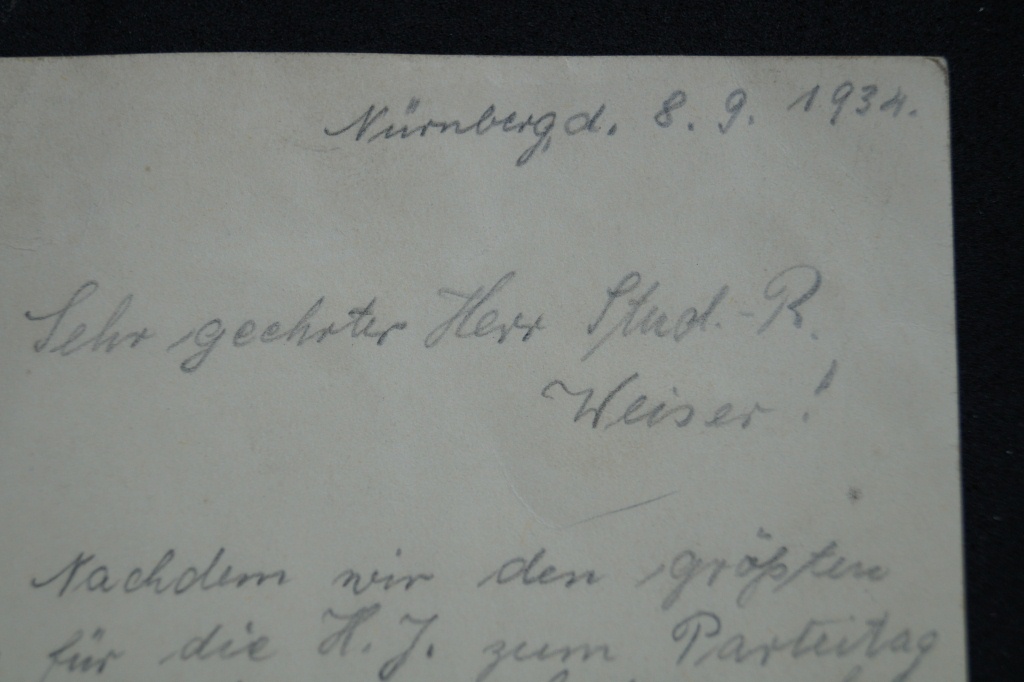 Nürnberg, d. 8. 9. 1934.
Sehr geehrter Herr Stud.-R.
Weiser!
Nachdem wir den größten
für die H. J. zum Parteitag